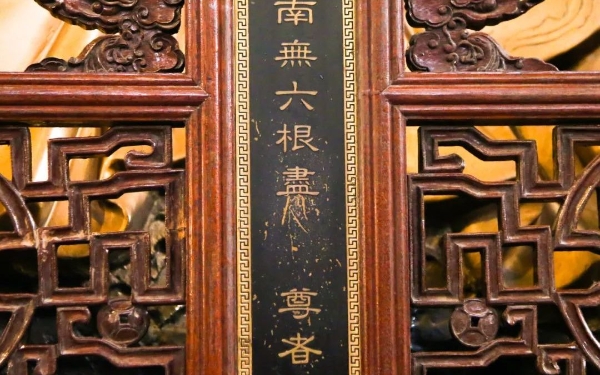 南無六根盡 尊者